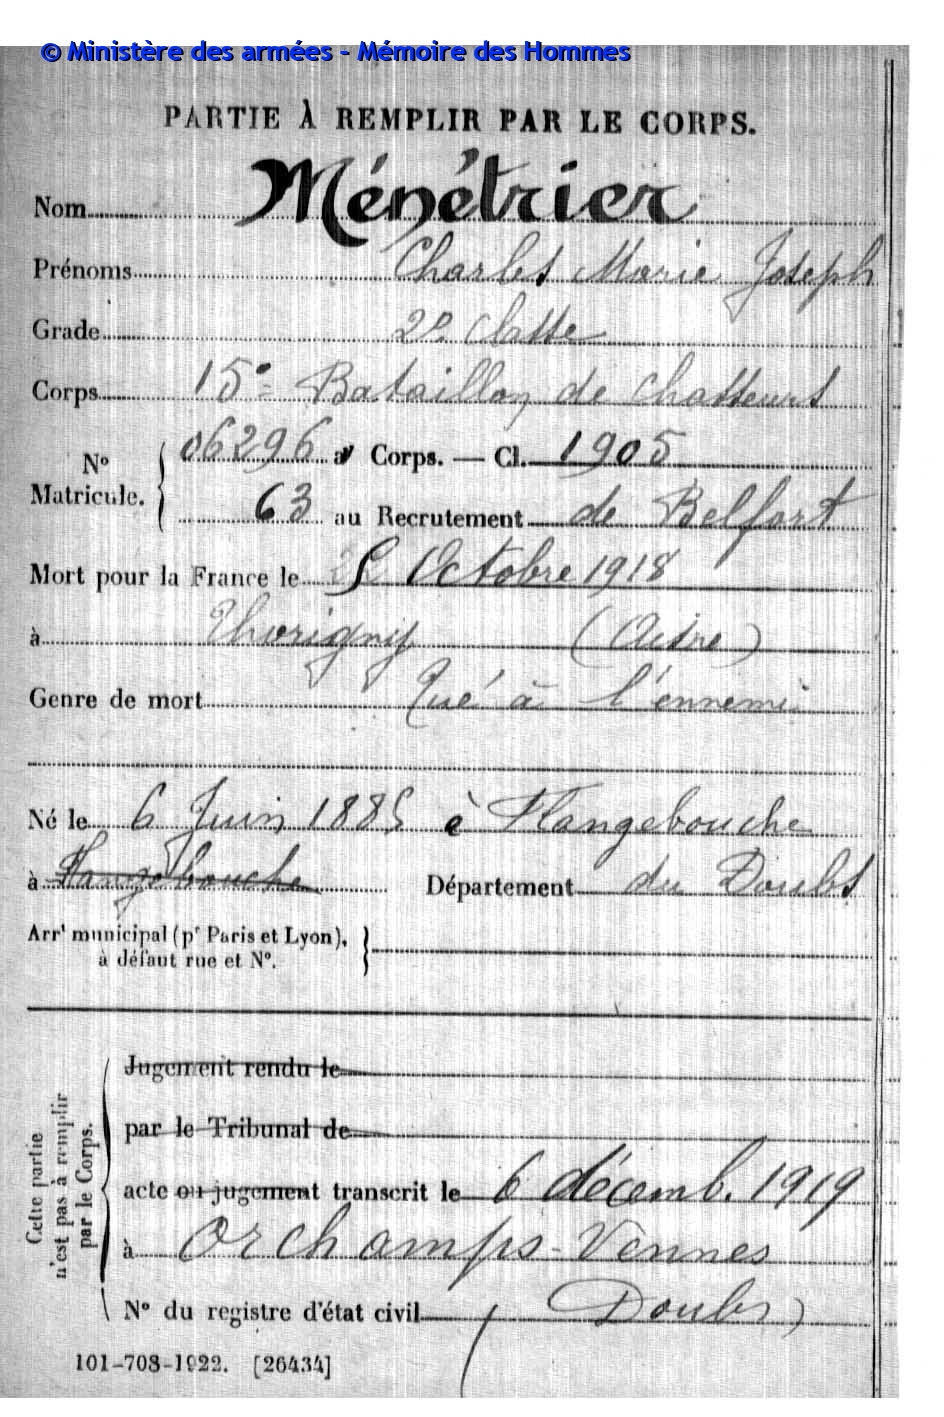 © Ministère des armées - Mémoire des Hommes
PARTIE À REMPLIR PAR LE CORPS.
Nom Ménétrier
Prénoms Charles Marie Joseph
Grade 2e classe
Corps 15e Bataillon de Chasseurs
N° Matricule. 06296 au Corps. — Cl. 1905
63 au Recrutement de Belfort
Mort pour la France le Octobre 1918
à Thorigny (Aisne)
Genre de mort Tué à l'ennemi
Né le 6 Juin 1885 à Flangebouche
à Flangebouche Département du Doubs
Arrt municipal (pr Paris et Lyon),
à défaut rue et N°.
Cette partie
n'est pas à remplir
par le Corps.
Jugement rendu le
par le Tribunal de
acte ou jugement transcrit le 6 décemb. 1919
à Orchamps-Vennes
N° du registre d'état civil (Doubs)
101-708-1922. [26434]